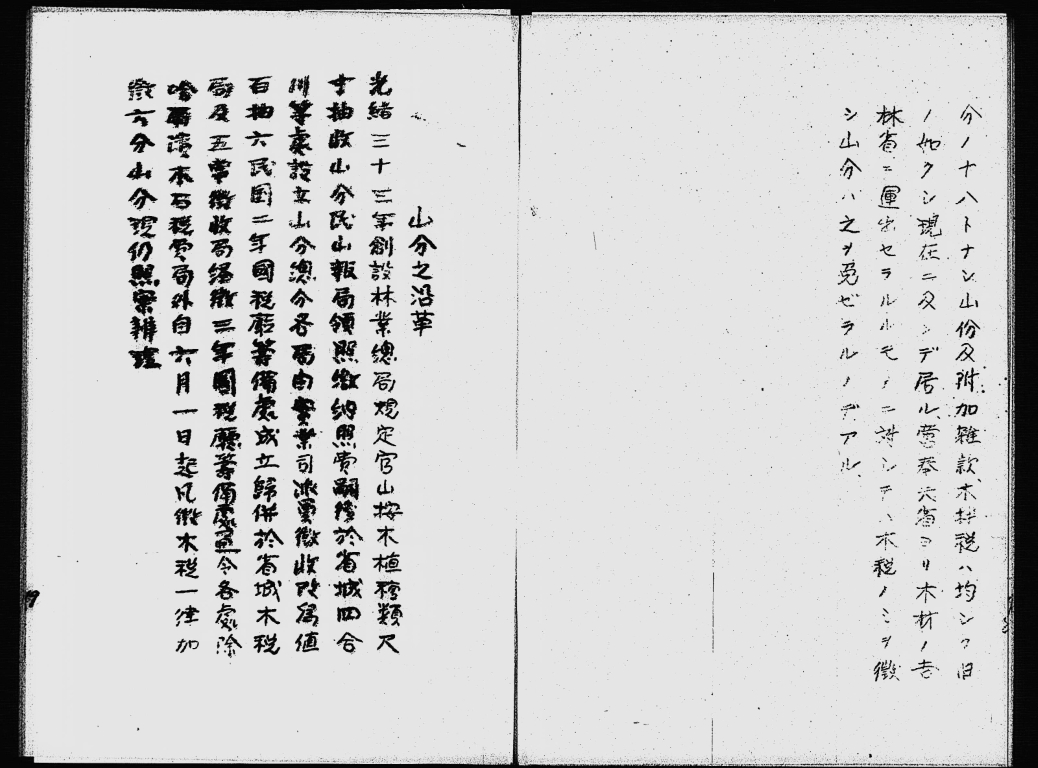 分ノ十八トナシ山份及附加雜款木材税ハ均シク旧
ノ如クシ現在ニ及ンデ居ル當奉天省ヨリ木材ノ吉
林省ニ運出セラルルモノニ對シテハ木税ノミヲ徴
シ山分ハ之ヲ免ゼラルノデアル
山分之沿革
光緒三十三年創設林業總局規定官山按木植種類尺
寸抽收山分民山報局領照繳納照費嗣後於省城四合
川等處設立山分總分各局由實業司派員徵收改為值
百抽六民国二年國税廳籌備處成立歸併於省城木税
局及五常徵收局經徵三年國税廳籌備處通令各處除
哈爾濱木石税費局外自六月一日起凡徵木税一律加
徵六分山分現仍照案辨理